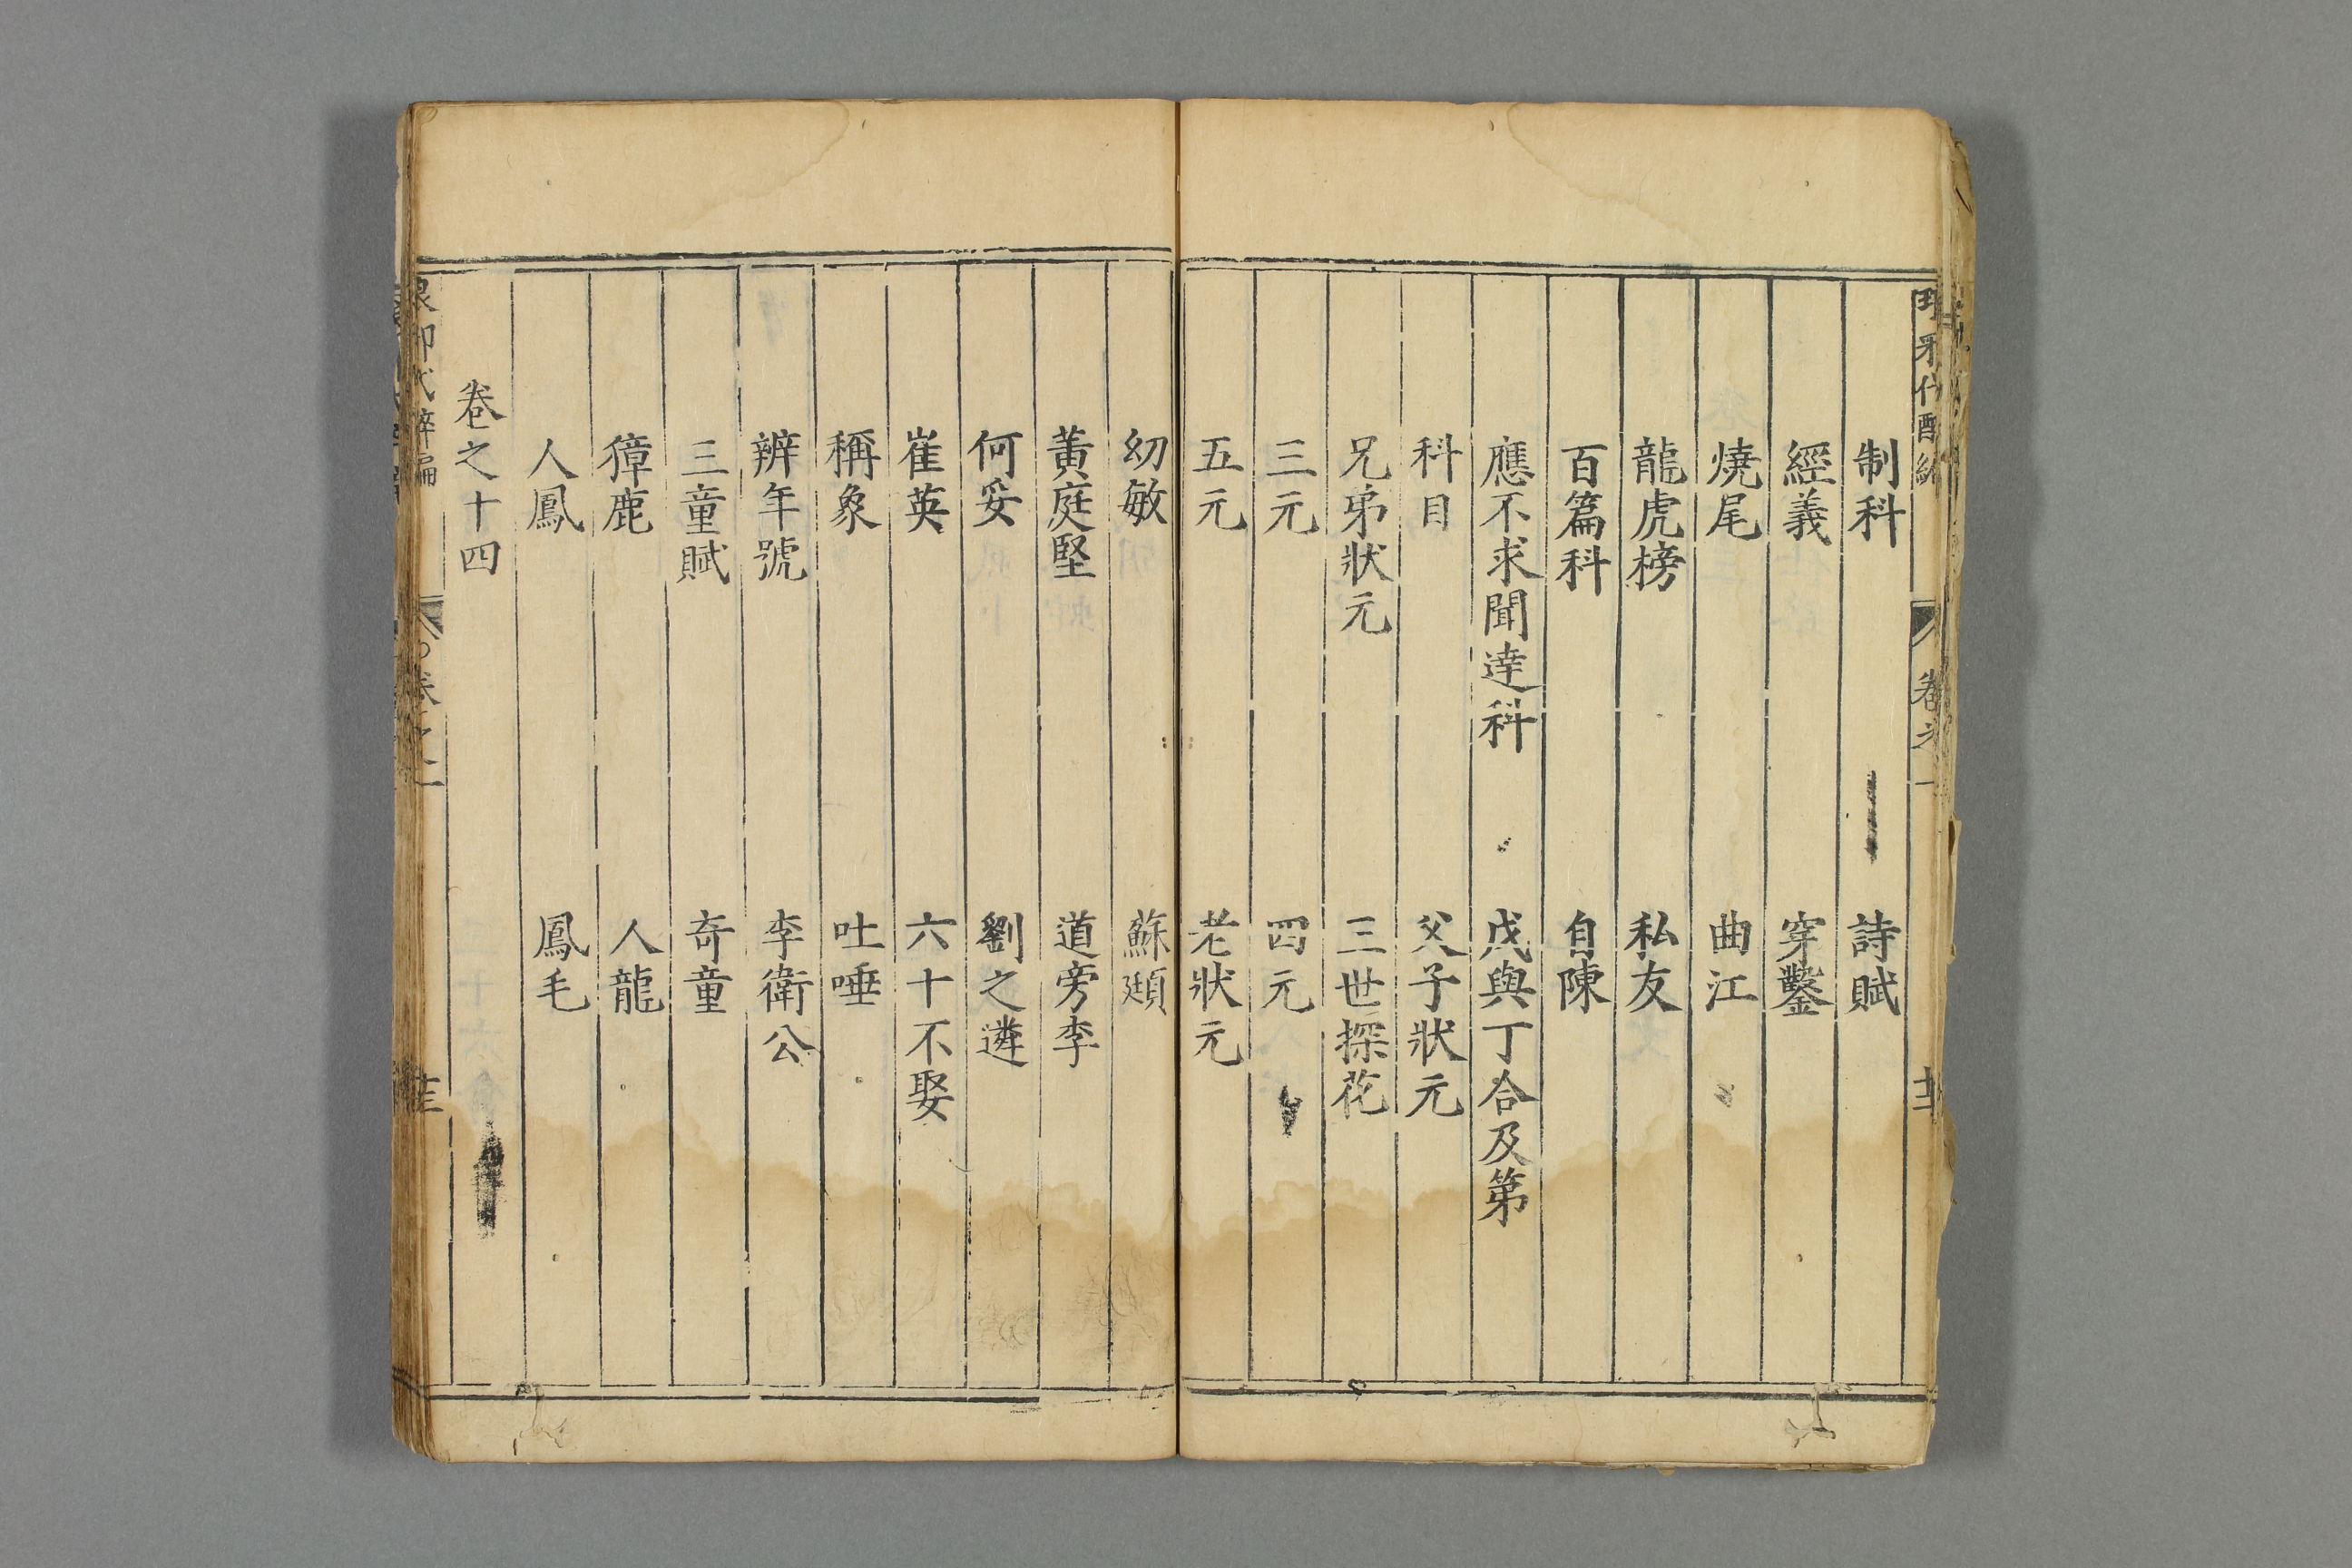 制科 詩賦
經義 穿鑿
燒尾 曲江
龍虎榜 私友
百篇科 自陳
應不求聞達科 戊與丁合及第
科目 父子狀元
兄弟狀元 三世探花
三元 四元
五元 老狀元
幼敏 蘇頲
黃庭堅 道旁李
何妥 劉之遴
崔英 六十不娶
稱象 吐唾
辨年號 李衛公
三童賦 奇童
獐鹿 人龍
人鳳 鳳毛
卷之十四